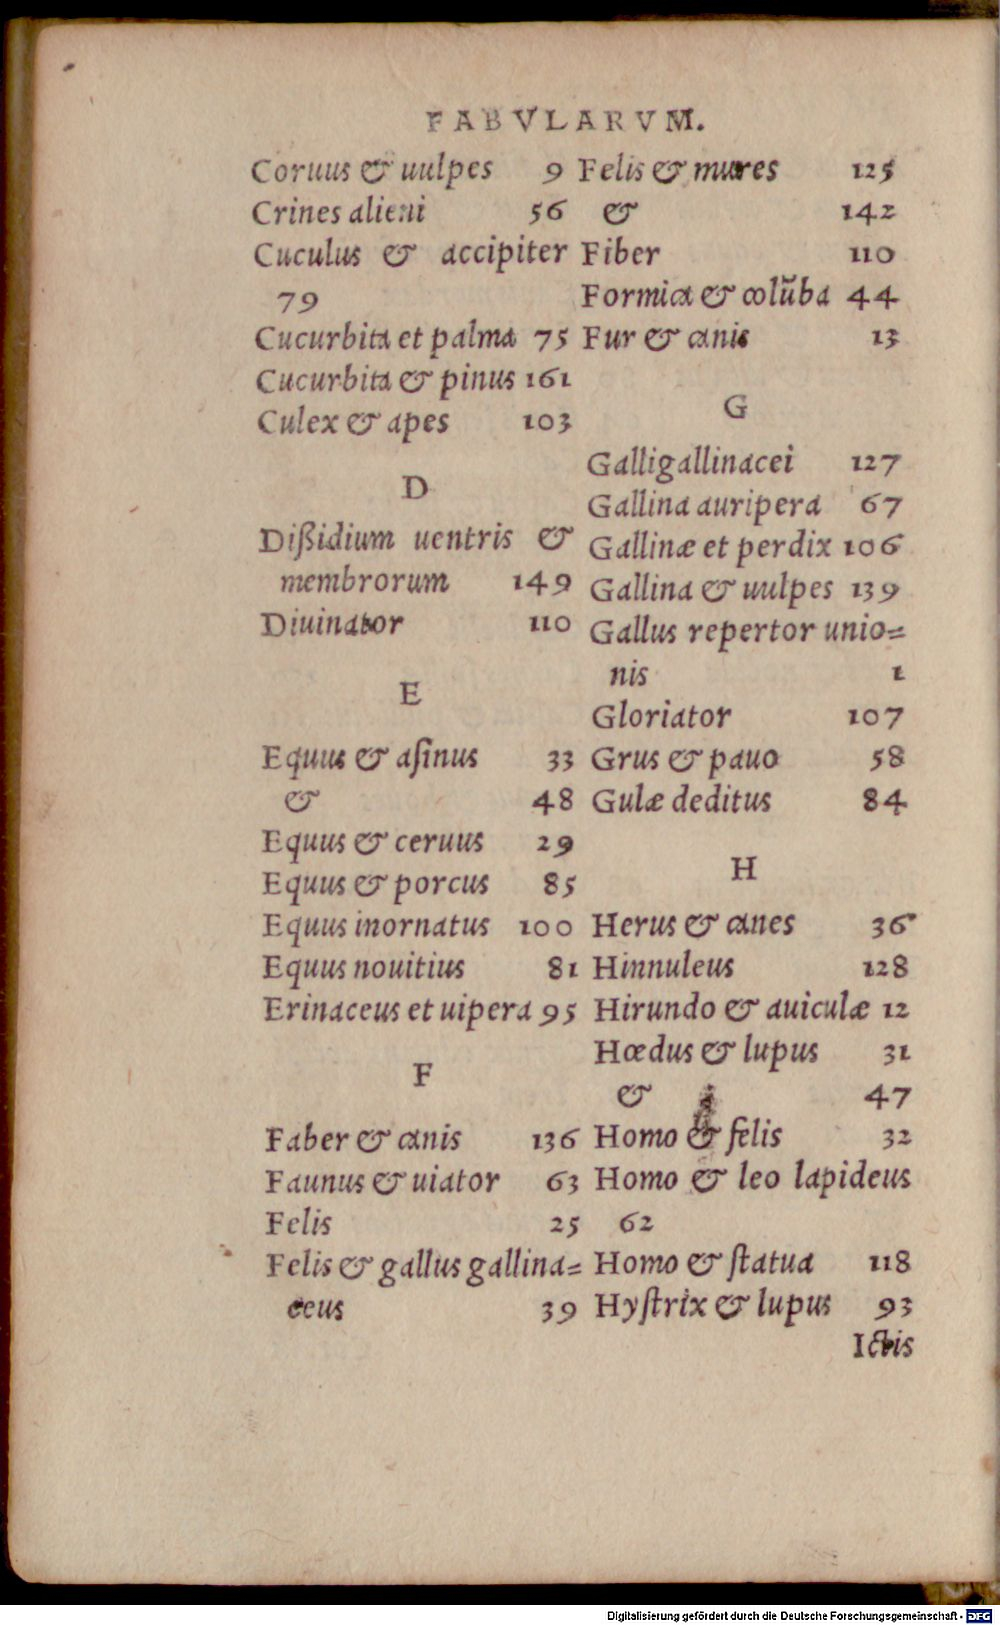 FABVLARVM.
Coruus & uulpes 9
Crines alieni 56
Cuculus & accipiter
79
Cucurbita et palma 75
Cucurbita & pinus 161
Culex & apes 103
D
Dißidium uentris &
membrorum 149
Diuinator 110
E
Equus & aſinus 33
& 48
Equus & ceruus 29
Equus & porcus 85
Equus inornatus 100
Equus nouitius 81
Erinaceus et uipera 95
F
Faber & canis 136
Faunus & uiator 63
Felis 25
Felis & gallus gallina=
ceus 39
Felis & mures 125
& 142
Fiber 110
Formica & colũba 44
Fur & canis 13
G
Galligallinacei 127
Gallina auripera 67
Gallinæ et perdix 106
Gallina & uulpes 139
Gallus repertor unio=
nis 1
Gloriator 107
Grus & pauo 58
Gulæ deditus 84
H
Herus & canes 36
Hinnuleus 128
Hirundo & auiculæ 12
Hœdus & lupus 31
& 47
Homo & felis 32
Homo & leo lapideus
62
Homo & ſtatua 118
Hyſtrix & lupus 93
Ictis
Digitalisierung gefördert durch die Deutsche Forschungsgemeinschaft - DFG